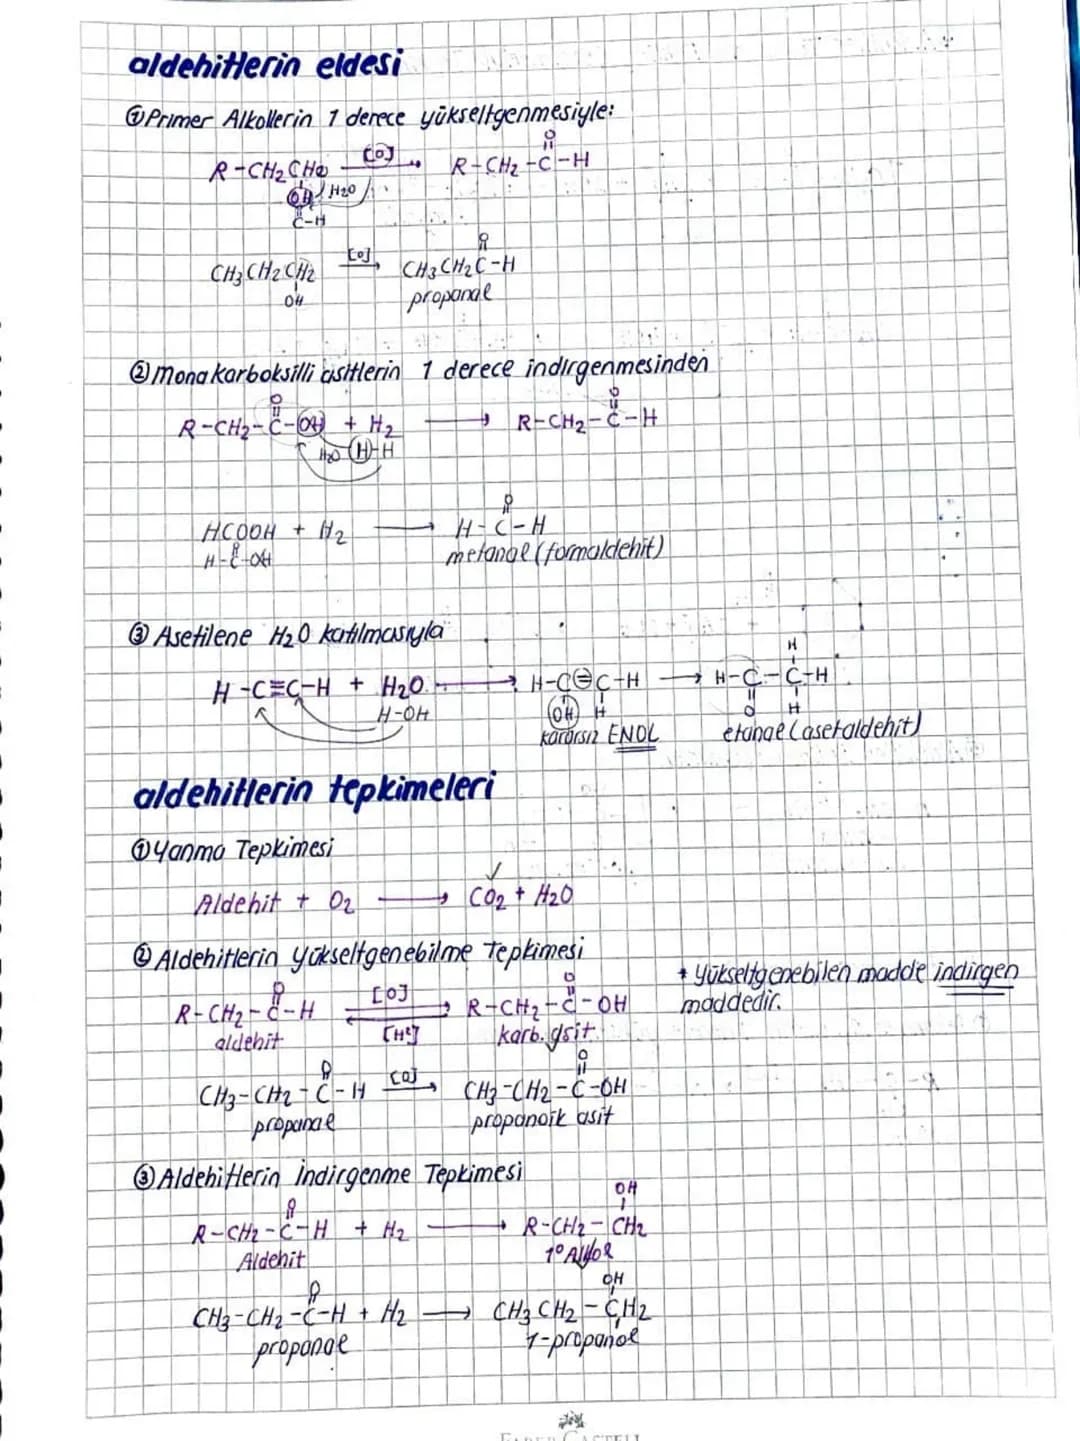 aldehitlerin eldesi
① Primer Alkollerin 1 derece yükseltgenmesiyle:
O
R-CH₂CH₂ [O] → R-CH₂-C-H
OH H₂O
C-H
O
CH₃CH₂CH₂ [O] → CH₃CH₂C-H
OH propanal
② Monokarboksilli asitlerin 1 derece indirgenmesinden
O O
R-CH₂-C-OH + H₂ → R-CH₂-C-H
H₂O H-H
O
HCOOH + H₂ → H-C-H
H-C-OH metanal (formaldehit)
③ Asetilene H₂O katılmasıyla
H
H-C≡C-H + H₂O → H-C=C-H → H-C-C-H
H-OH OH H O H
kararsız ENOL etanal (asetaldehit)
aldehitlerin tepkimeleri
① Yanma Tepkimesi
Aldehit + O₂ → CO₂ + H₂O
② Aldehitlerin yükseltgenebilme Tepkimesi
* Yükseltgenebilen madde indirgen
maddedir.
O O
R-CH₂-C-H [O] ⇄ R-CH₂-C-OH
aldehit karb. asit
O O
CH₃-CH₂-C-H [O] → CH₃-CH₂-C-OH
propanal propanoik asit
③ Aldehitlerin İndirgenme Tepkimesi
O OH
R-CH₂-C-H + H₂ → R-CH₂-CH₂
Aldehit 1° Alkol
O OH
CH₃-CH₂-C-H + H₂ → CH₃CH₂-CH₂
propanal 1-propanol
FABER-CASTELL